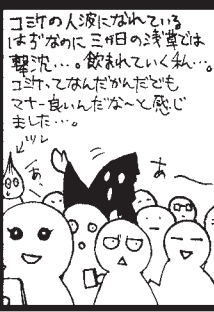 コミケの人波になれている
はずなのに三が日の浅草では
撃沈…。飲まれていく私…。
コミケってなんだかんだでも
マナー良いんだな〜と感じ
ました…。
あ
あー